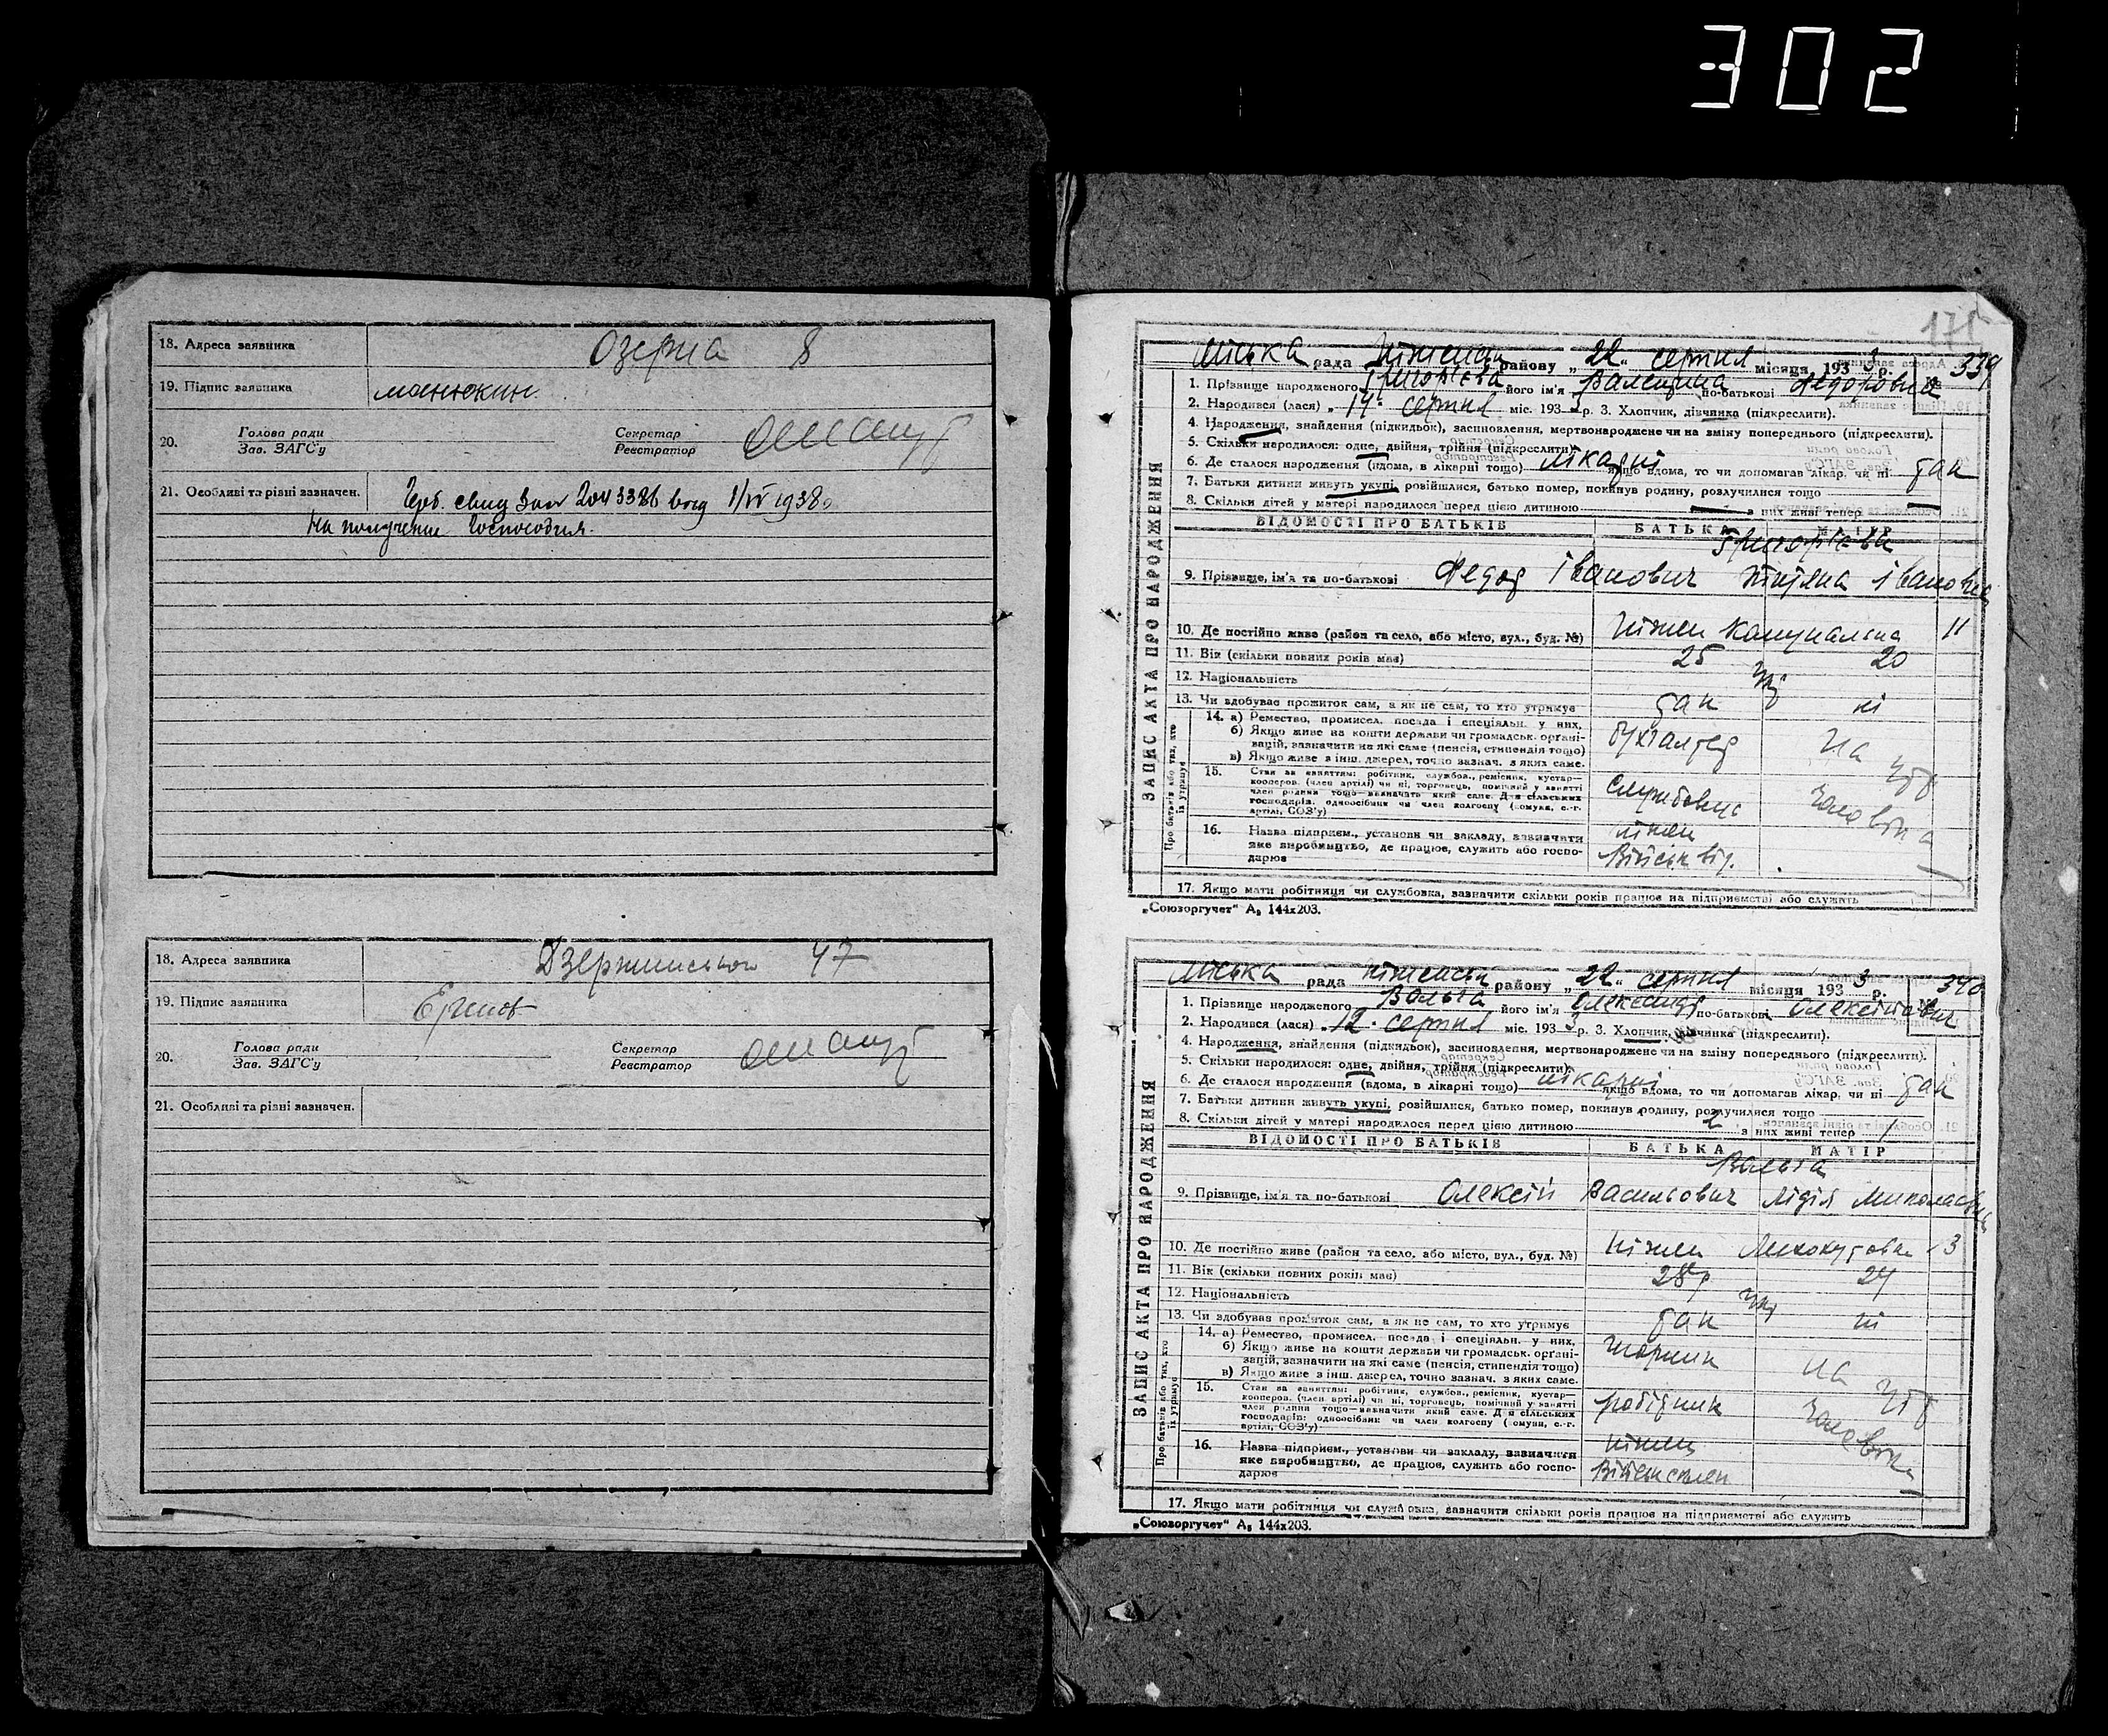 302
18. Адреса заявника Озерна 8
19. Підпис заявника манюкин
20. Голова ради Секретар
Зав. ЗАГС'у Реєстратор
21. Особливі та різні зазначен. 1938
На получение Госпособия.
18. Адреса заявника Дзержинського 47
19. Підпис заявника
20. Голова ради Секретар
Зав. ЗАГС'у Реєстратор
21. Особливі та різні зазначен.
171
Міська рада Ніженськ району „22" серпня місяця 1933 р. № 339
1. Прізвище народженого Григорієва його ім'я Валентина по-батькові Федоровна
2. Народився (лася) „14" серпня міс. 1933 р. 3. Хлопчик, дівчинка (підкреслити).
4. Народження, знайдення (підкидьок), засиновлення, мертвонароджене чи на зміну попереднього (підкреслити).
5. Скільки народилося: одне, двійня, трійня (підкреслити)
6. Де сталося народження (вдома, в лікарні тощо) лікарні якщо вдома, то чи допомагав лікар, чи ні так
7. Батьки дитини живуть укупі, розвійшлися, батько помер, покинув родину, розлучилися тощо
8. Скільки дітей у матері народилося перед цією дитиною — з них живі тепер —
ЗАПИС АКТА ПРО НАРОДЖЕННЯ
ВІДОМОСТІ ПРО БАТЬКІВ БАТЬКА МАТІР
Григорієви
9. Прізвище, ім'я та по-батькові Федор Іванович Тетяна Івановна
10. Де постійно живе (район та село, або місто, вул., буд. №) Ніжен Комунальна 11
11. Вік (скільки повних років має) 25 20
12. Національність укр
13. Чи здобуває прожиток сам, а як не сам, то хто утримує так ні
Про батьків або тих, хто їх утримує
14. а) Ремество, промисел, посада і спеціяльн. у них,
б) Якщо живе на кошти держави чи громадськ. органі-
зацій, зазначити на які саме (пенсія, стипендія тощо) бухгалтер на
в) Якщо живе з інш. джерел, точно зазнач. з яких саме. утр
15. Стан за заняттям: робітник, службов., ремісник, кустар—
кооперов. (член артілі) чи ні, торговець, помічний у занятті
член родини тощо—зазначать який саме. Для сільських службовець чоловіка
господарів: одноосібник чи член колгоспу (комуни, с.-г.
артілі, СОЗ'у)
16. Назва підприєм., установи чи закладу, зазначити Ніжен
яке виробництво, де працює, служить або госпо-
дарює
17. Якщо мати робітниця чи службовка, зазначити скільки років працює на підприємстві або служить
„Союзоргучет" А₅ 144x203.
Міська рада Ніженськ району „22" серпня місяця 1933 р. № 340
1. Прізвище народженого Вольга його ім'я Олександр по-батькові Олексійович
2. Народився (лася) „12" серпня міс. 1933 р. 3. Хлопчик, дівчинка (підкреслити).
4. Народження, знайдення (підкидьок), засиновлення, мертвонароджене чи на зміну попереднього (підкреслити).
5. Скільки народилося: одне, двійня, трійня (підкреслити)
6. Де сталося народження (вдома, в лікарні тощо) лікарні якщо вдома, то чи допомагав лікар, чи ні так
7. Батьки дитини живуть укупі, розвійшлися, батько помер, покинув родину, розлучилися тощо
8. Скільки дітей у матері народилося перед цією дитиною 2 з них живі тепер 1
ЗАПИС АКТА ПРО НАРОДЖЕННЯ
ВІДОМОСТІ ПРО БАТЬКІВ БАТЬКА МАТІР
Вольга
9. Прізвище, ім'я та по-батькові Олексій Васильович Лідія Миколаєвна
10. Де постійно живе (район та село, або місто, вул., буд. №) Ніжен 3
11. Вік (скільки повних років має) 28 24
12. Національність укр
13. Чи здобуває прожиток сам, а як не сам, то хто утримує так ні
Про батьків або тих, хто їх утримує
14. а) Ремество, промисел, посада і спеціяльн. у них,
б) Якщо живе на кошти держави чи громадськ. органі-
зацій, зазначити на які саме (пенсія, стипендія тощо) на
в) Якщо живе з інш. джерел, точно зазнач. з яких саме. утр
15. Стан за заняттям: робітник, службов., ремісник, кустар—
кооперов. (член артілі) чи ні, торговець, помічний у занятті
член родини тощо—зазначать який саме. Для сільських робітник чоловіка
господарів: одноосібник чи член колгоспу (комуни, с.-г.
артілі, СОЗ'у)
16. Назва підприєм., установи чи закладу, зазначити Ніжен
яке виробництво, де працює, служить або госпо-
дарює
17. Якщо мати робітниця чи службовка, зазначити скільки років працює на підприємстві або служить
„Союзоргучет" А₅ 144x203.